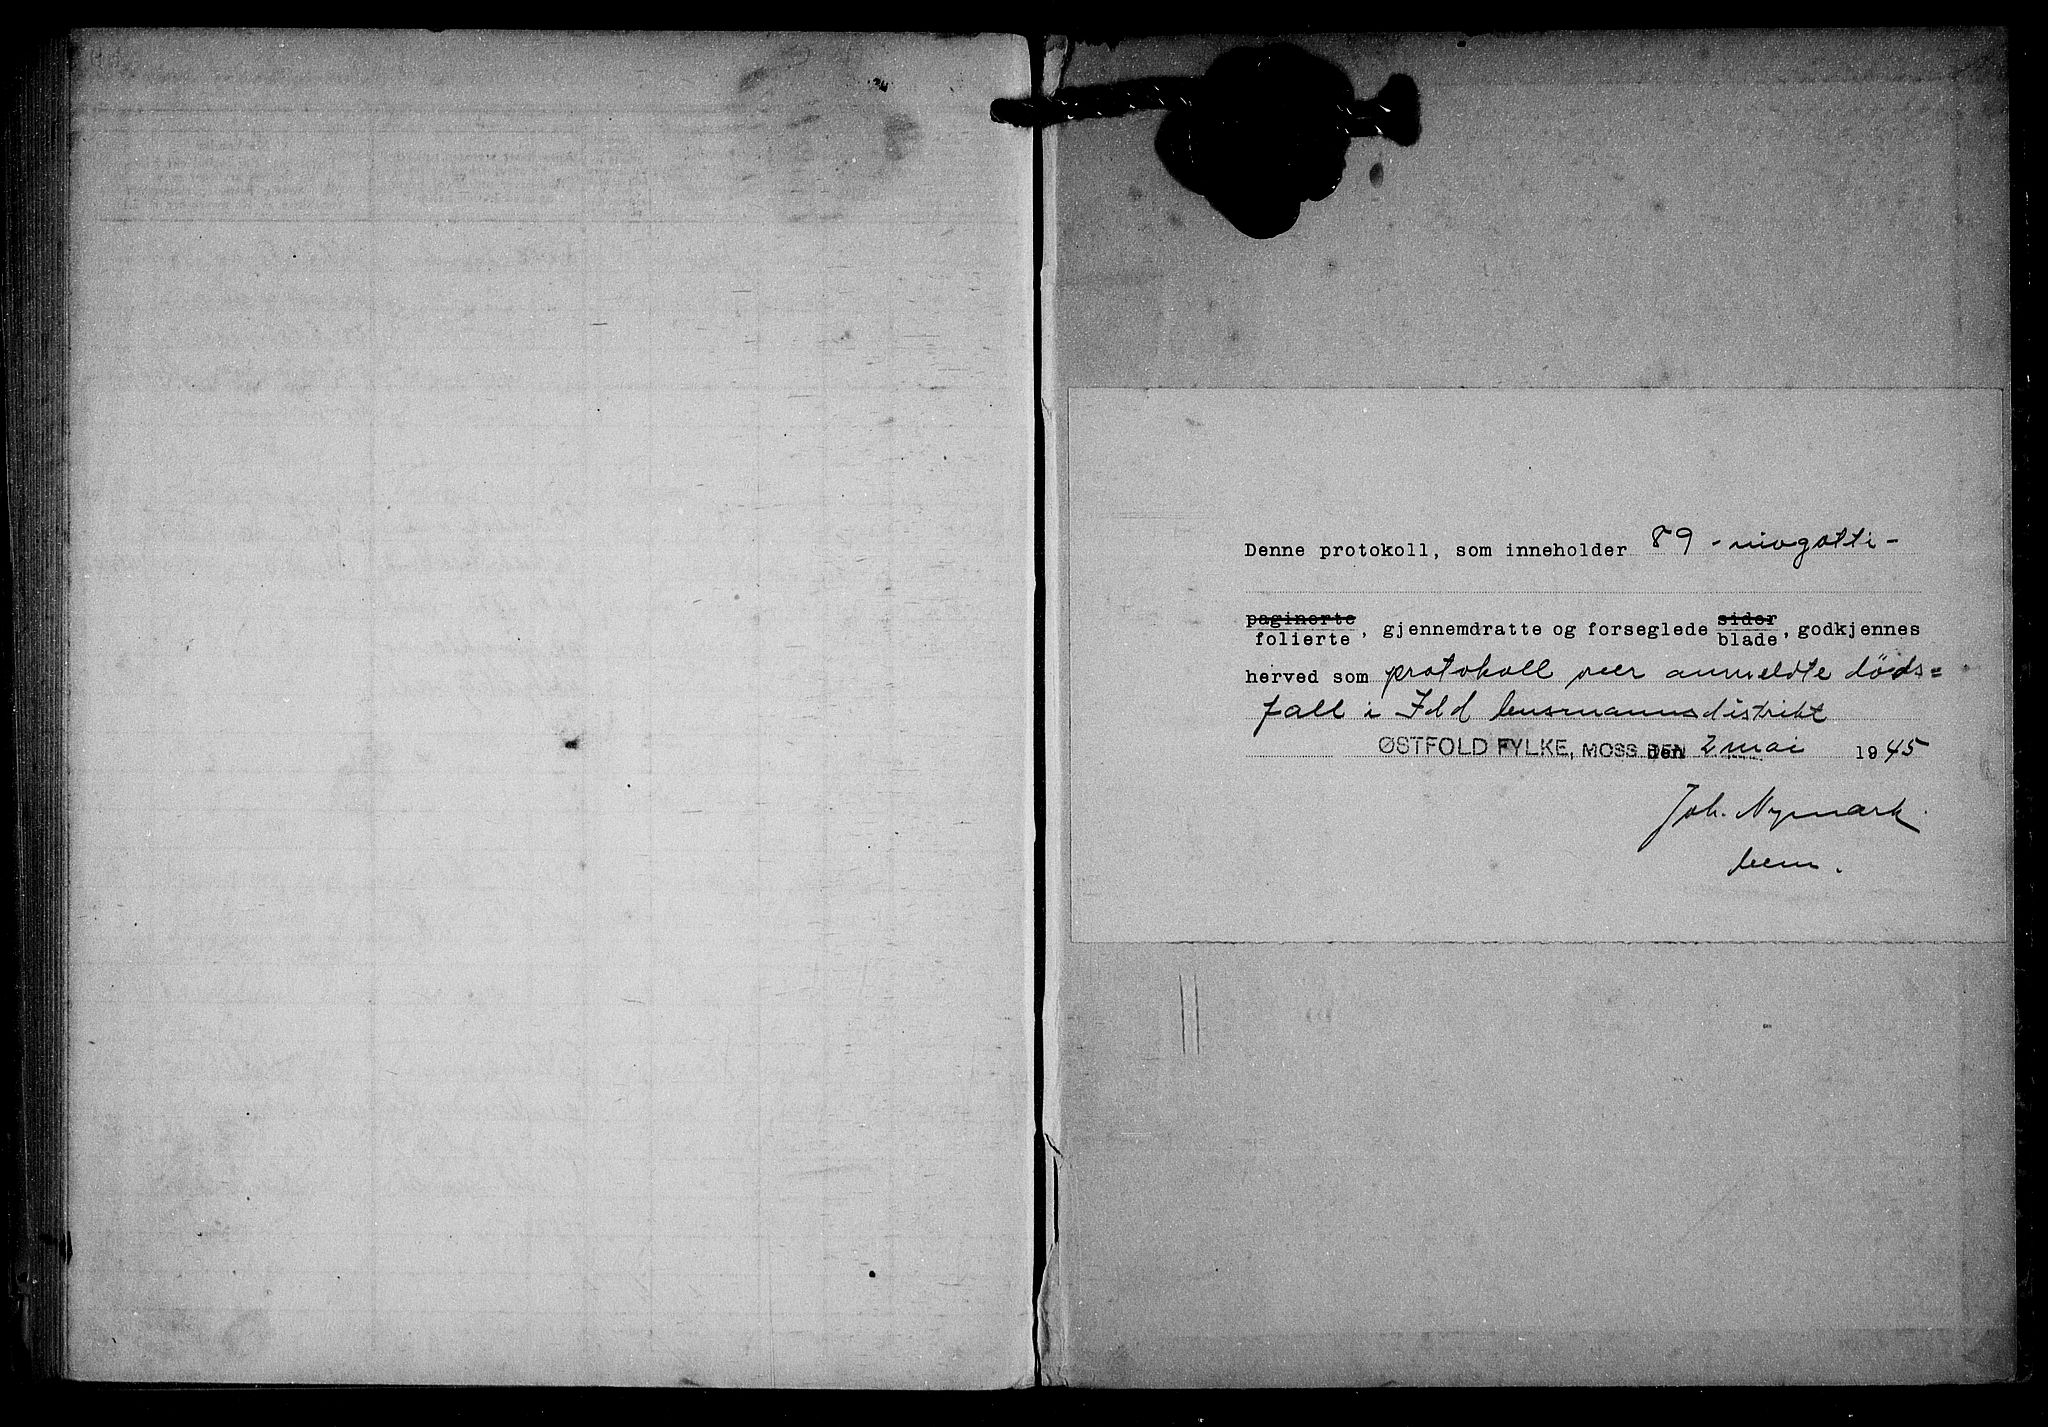 Denne protokoll, som inneholder 89 - niogotti -
paginerte
folierte, gjennemdratte og forseglede sider
blade, godkjennes
herved som protokoll over anmeldte døds=
fall i Idd lensmannsdistrikt
ØSTFOLD FYLKE, MOSS DEN den 2 mai 1945
Joh. Nymark